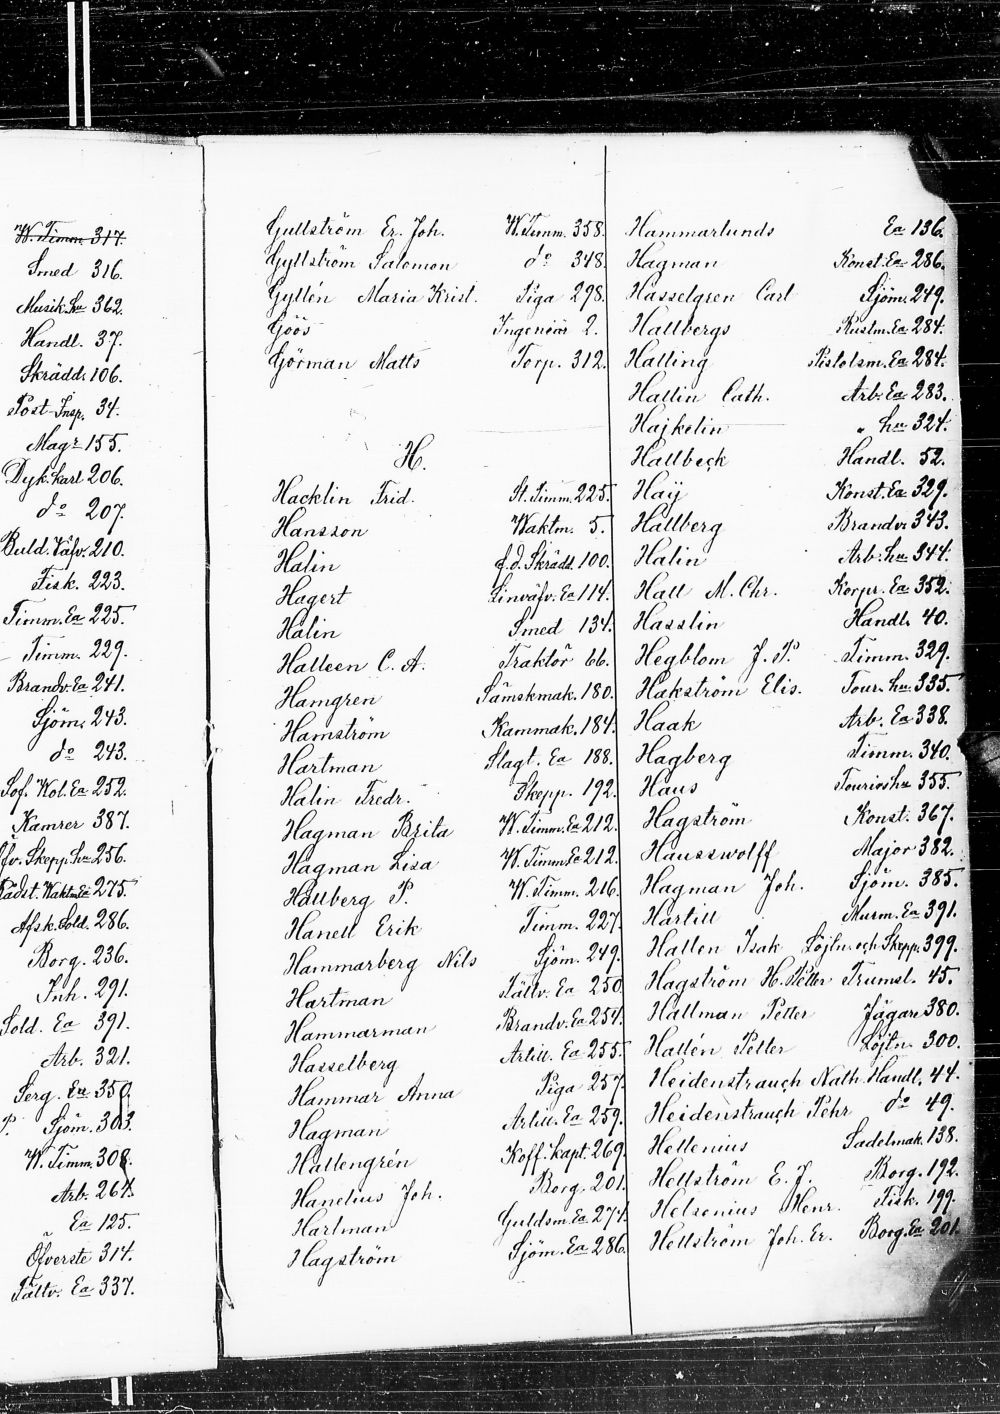 W. Timm. 317.
Smed 316.
Musik. hu 362.
Handl. 37.
Skrädd. 106.
Post-Insp. 34.
Magr 155.
Dyk. karl 206.
do 207.
Buld. Väfv. 210.
Fisk. 223.
Timm. Ea 225.
Timm. 229.
Brandv. Ea 241.
Sjöm. 243.
do 243.
Sof. Wol. Ea 252.
Kamrer 387.
Öfv. Skepp. hu 256.
Rådst. Waktm. Ea 275.
Afsk. Sold. 286.
Borg. 236.
Inh. 291.
Sold. Ea 391.
Arb. 321.
Serg. Ea 350.
P. Sjöm. 303.
W. Timm. 308.
Arb. 264.
Ea 125.
Öfverste 314.
Tältv. Ea 337.
Gullström Er. Joh. W. Timm. 358.
Gyllström Salomon do 348.
Gyllén Maria Krist. Piga 298.
Göös Ingeniör 2.
Görman Matts Torp. 312.
H.
Hacklin Frid. St. Timm. 225.
Hansson Waktm. 5.
Halin f. d. Skrädd. 100.
Hagert Linväfv. Ea 114.
Halin Smed 134.
Halleen C. A. Traktör 66.
Hamgren Sämskmak. 180.
Hamström Kammak. 184.
Hartman Slagt. Ea 188.
Halin Fredr. Skepp. 192.
Hagman Brita W. Timm. Ea 212.
Hagman Lisa W. Timm. Ea 212.
Hallberg P. W. Timm. 216.
Hanell Erik Timm. 227.
Hammarberg Nils Sjöm. 249.
Hartman Tältv. Ea 250.
Hammarman Brandv. Ea 254.
Hasselberg Artill. Ea 255.
Hammar Anna Piga 257.
Hagman Artill. Ea 259.
Hallengrén Koff. kapt. 269.
Hanelius Joh. Borg. 201.
Hartman Guldsm. Ea 274.
Hagström Sjöm. Ea 286.
Hammarlunds Ea 136.
Hagman Konst. Ea 286.
Hasselgren Carl Sjöm. 249.
Hallbergs Rustm. Ea 284.
Halling Pistolsm. Ea 284.
Hallin Cath. Arb. Ea 283.
Hajkelin " hu 324.
Hallbeck Handl. 52.
Haÿ Konst. Ea 329.
Hallberg Brandv. 343.
Halin Arb. hu 344.
Hall M. Chr. Korpr. Ea 352.
Hasslin Handl. 40.
Hegblom J. P. Timm. 329.
Hakström Elis. Tour. hu 335.
Haak Arb. Ea 338.
Hagberg Timm. 340.
Haus Tourios hu 355.
Hagström Konst. 367.
Hausswolff Major 382.
Hagman Joh. Sjöm. 385.
Hartill Murm. Ea 391.
Hallen Isak Löjtn. och Skepp. 399.
Hagström H. Petter Trumsl. 45.
Hallman Petter Jägare 380.
Hallén Petter Löjtn. 300.
Heidenstrauch Nath. Handl. 44.
Heidenstrauch Pehr do 49.
Hellenius Sadelmak. 138.
Hellström E. J. Borg. 192.
Helsenius Henr. Fisk. 199.
Hellström Joh. Er. Borg. Ea 201.